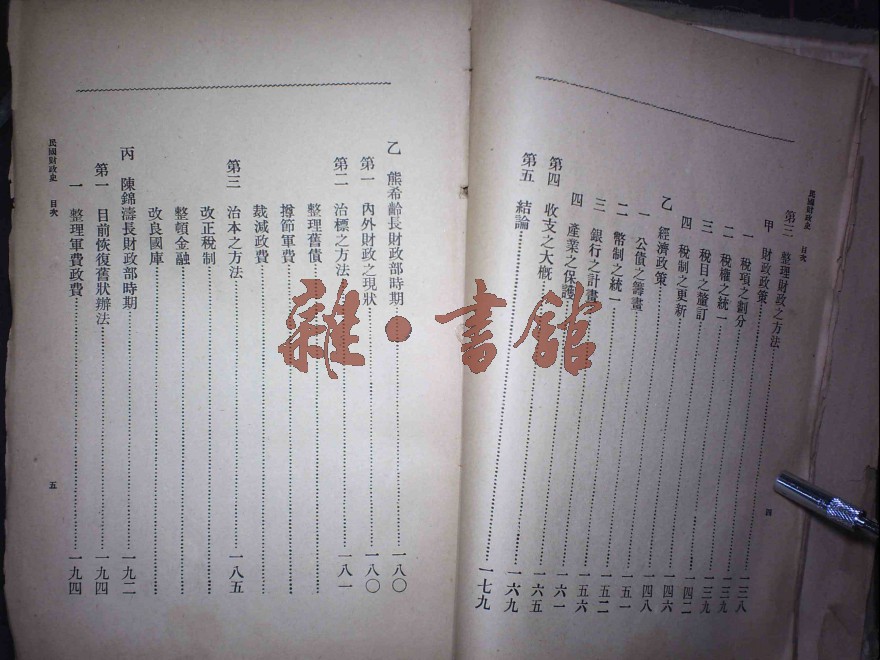 民國財政史 目次 四
第三 整理財政之方法……一三八
甲 財政政策……一三九
一 稅項之劃分……一三九
二 稅權之統一……一四二
三 稅目之釐訂……一四六
四 稅制之更新……一四八
乙 經濟政策……一五一
一 公債之籌畫……一五二
二 幣制之統一……一五六
三 銀行之計畫……一六一
四 產業之保護……一六五
第四 收支之大概……一六九
第五 結論……一七九
乙 熊希齡長財政部時期……一八〇
第一 內外財政之現狀……一八〇
第二 治標之方法……一八一
整理舊債……
撙節軍費……
裁減政費……
第三 治本之方法……一八五
改正稅制……
整頓金融……
改良國庫……
丙 陳錦濤長財政部時期……一九二
第一 目前恢復舊狀辦法……一九四
一 整理軍費政費……一九四
民國財政史 目次 五
雜·書館